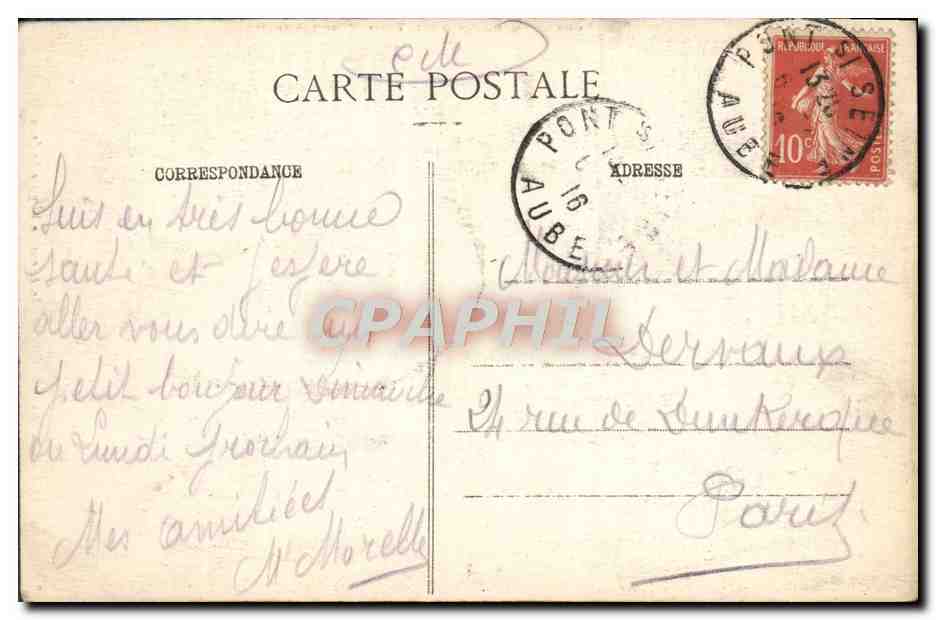 CM
CARTE POSTALE
CORRESPONDANCE
ADRESSE
REPUBLIQUE FRANCAISE
10c
POSTES
PONT S/ SEINE
AUBE
PONT S
16
AUBE
Suis en très bonne
santé et j'espère
aller vous dire un
petit bonjour Dimanche
ou Lundi prochain
Mes amitiées
M Morelle
Monsieur et Madame
Dervaux
24 rue de Dunkerque
Paris
CPAPHIL